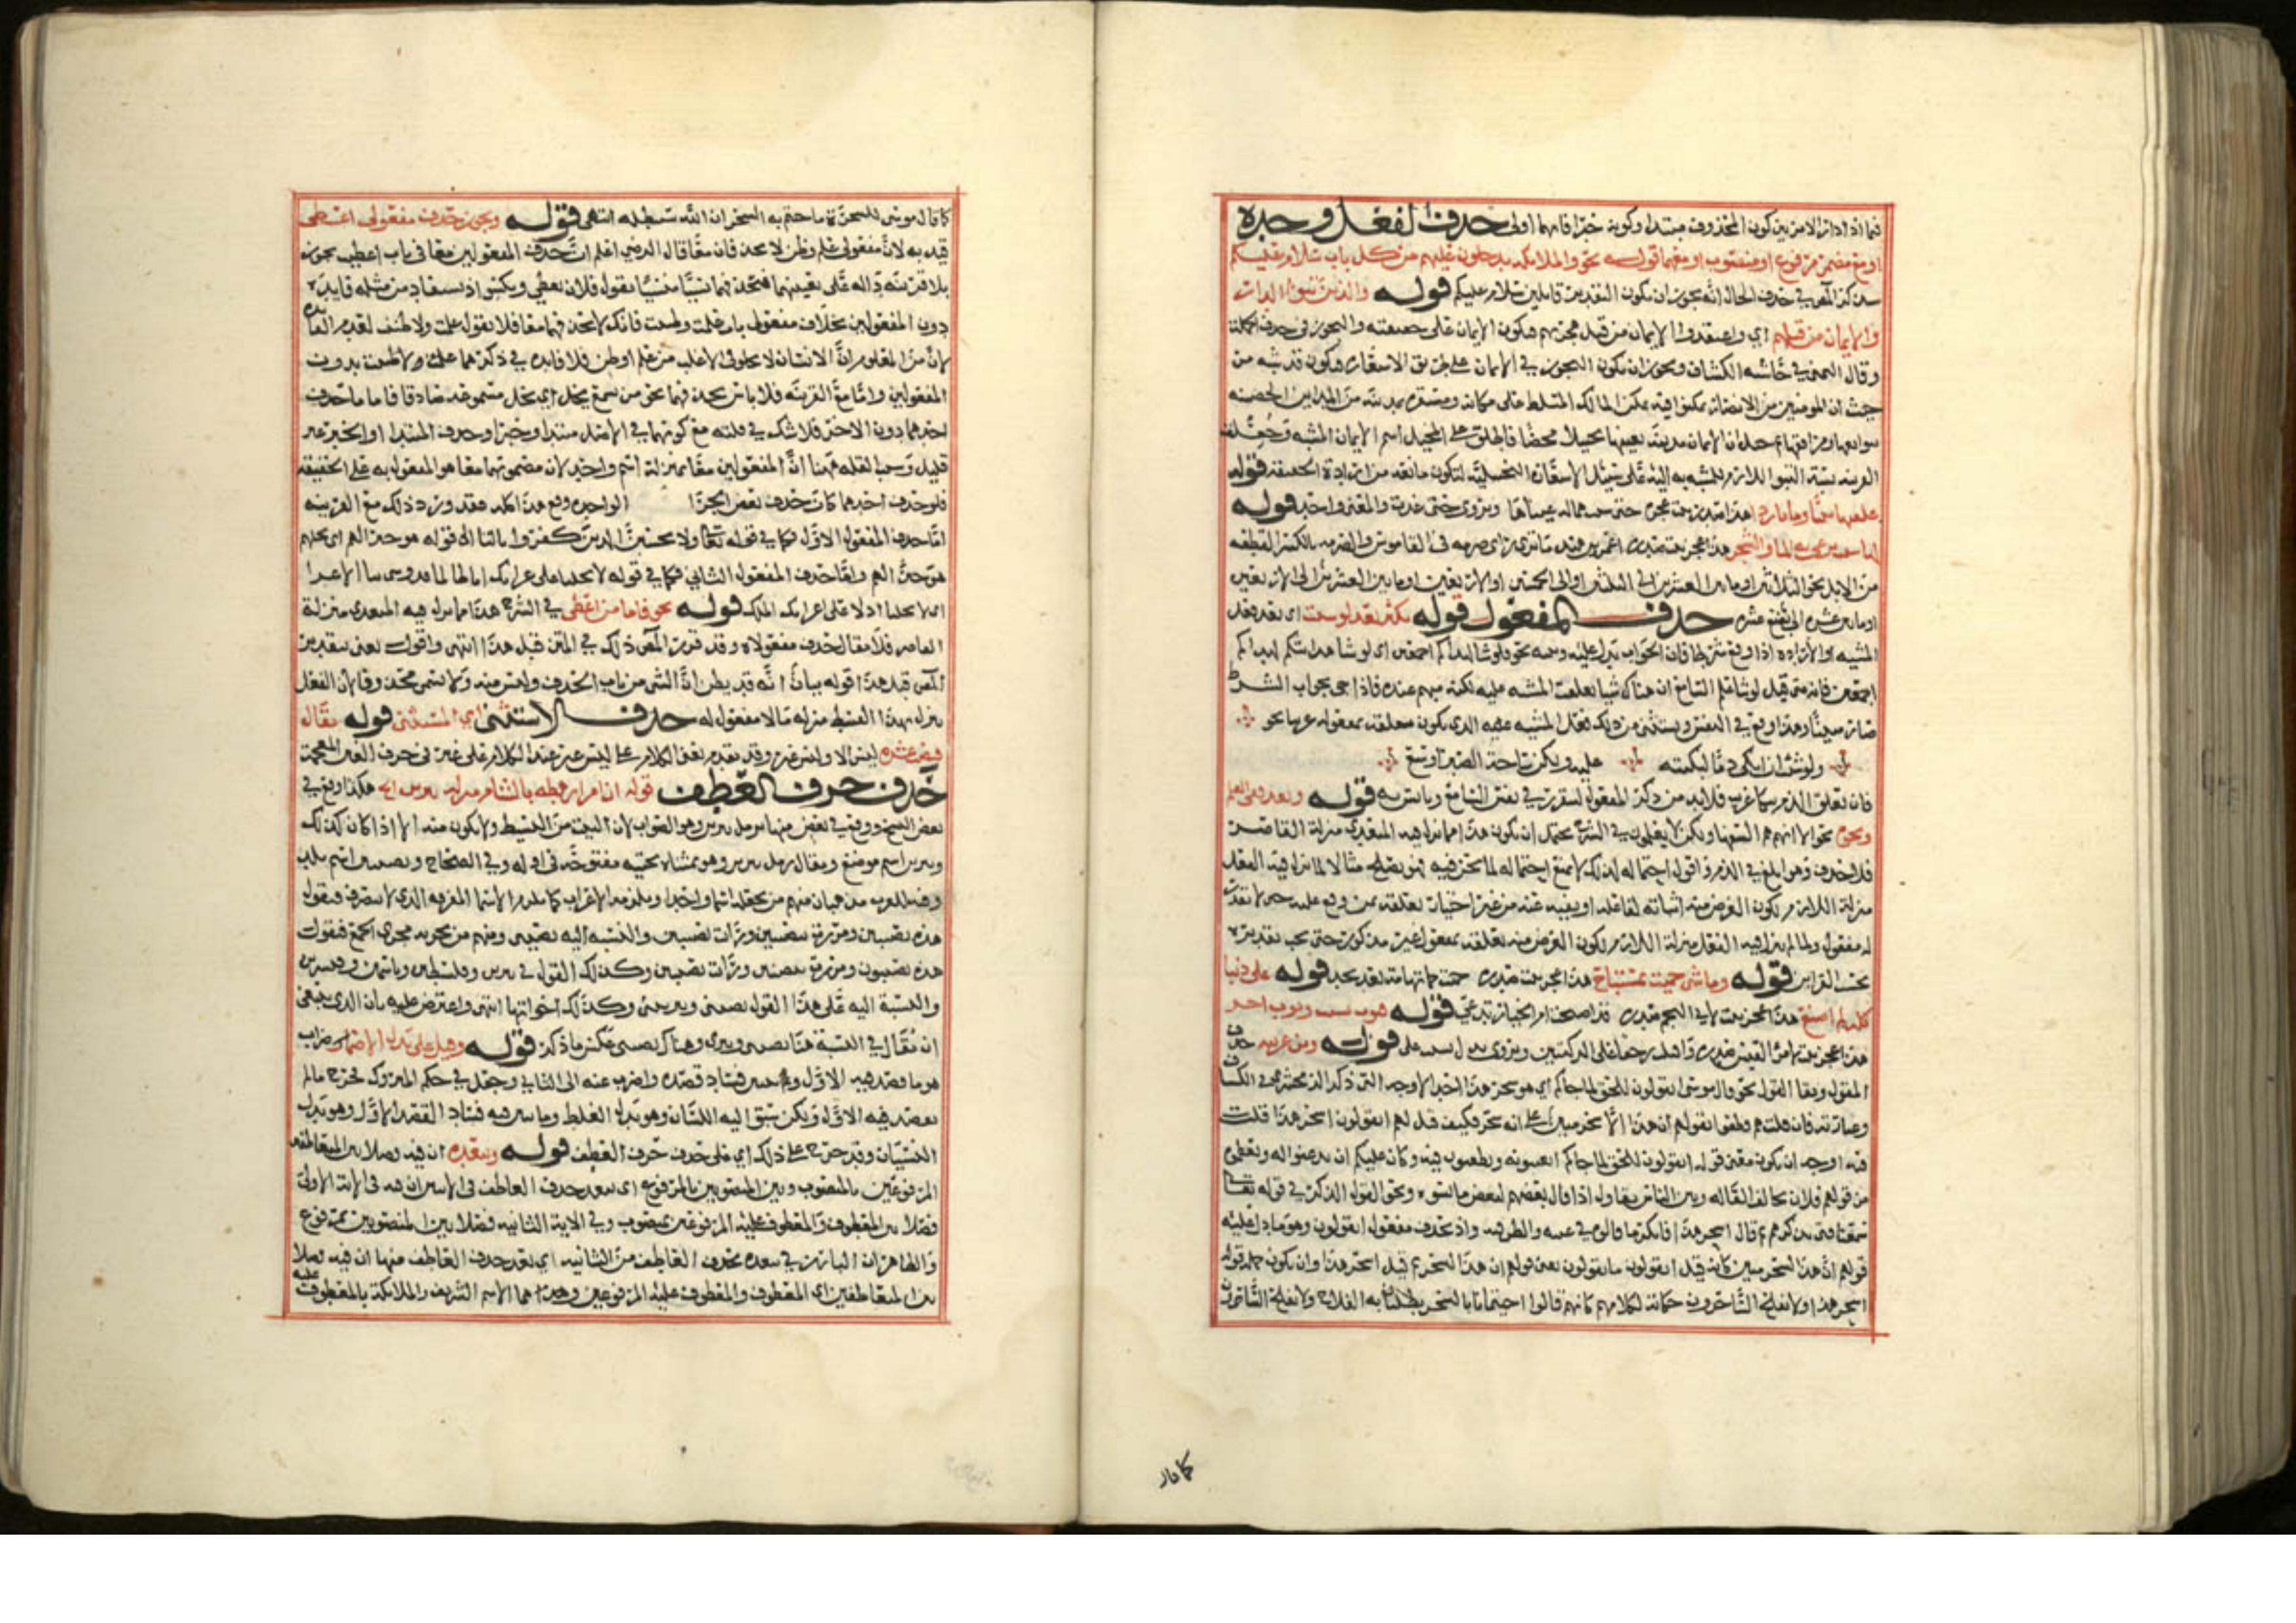 فما اذا دار الامر بين كون المحذوف مبتدا وكونه خبرا فايهما اولى حذف الفعل وحده
او مع مضمر مرفوع او منصوب او معهما قوله نحو والملائكة يدخلون عليهم من كل باب سلام عليكم
في حذف الحال انه يجوز ان يكون التقدير قايلين سلام عليكم قوله والذين تبوؤا الدار
والايمان من قبلهم اي واعتقدوا الايمان من قبل هجرتهم فيكون الايمان على حقيقته والتجوز في حذف
وقال اليمني في حاشية الكشاف ويجوز ان يكون التجوز في الايمان على طريق الاستعارة فيكون قد شبه من
حيث ان المومنين من الانصار تمكنوا فيه تمكن المالك المتسلط على مكانه ومستقره بمدينة من المداين الحصينة
الايمان مدينة بعينها تخييلا محضا فاطلق على المخيل اسم الايمان المشبه وجعلت
القرينة نسبة التبوا اللازم للمشبه به اليه على سبيل الاستعارة التخييلية لتكون مانعة من ارادة الحقيقة قوله
علفتها تبنا وماء باردا هذا صدر بيت عجزه حتى شتت همالة عيناها ويروى حتى غدت والمعنى واحد قوله
الماء والشجر هذا عجز بيت صدره في القاموس والصرمه بالكسر القطعة
من الابل نحو الثلاثين او ما بين العشرين الى الثلاثين او الى الخمسين والاربعين او ما بين العشرة الى الاربعين
او ما بين عشرة الى بضع عشرة حذف المفعول قوله يكثر بعد لو شئت اي بعد فعل
المشية او الارادة اذا وقع شرطا فان الجواب يدل عليه نحو فلو شاء لهداكم اجمعين اي لو شاء هدايتكم لهداكم
اجمعين فانه متى قيل لو شاء علم السامع ان هناك شيا تعلقت المشية عليه لكنه مبهم عنده فاذا جي بجواب الشرط
صار مبينا وهذا اوقع في النفس ويستثنى من ذلك فعل المشية الذي يكون تعلقه بمفعوله غريبا نحو
ولو شئت ان ابكي دما لبكيته عليه ولكن ساحة الصبر اوسع
فان تعلق الدم غريب فلا بد من ذكر المفعول ليتقرر في نفس السامع ويانس به قوله وبعد نفي العلم
ونحوه نحو الا انهم هم السفهاء ولكن لا يعلمون في الشرح يحتمل ان يكون هذا مما نزل فيه المتعدي منزلة القاصر
فلا حذف وهو ابلغ في الذم واقول احتماله لذلك لا يمنع احتماله لما نحن فيه فهو يصلح مثالا لما نزل فيه الفعل
منزلة اللازم لكون الغرض منه اثباته لفاعله او نفيه عنه من غير اعتبار تعلقه بمن وقع عليه حتى لا يقدر
له مفعول ولما لم ينزل فيه الفعل منزلة اللازم لكون الغرض منه تعلقه بمفعول غير مذكور حتى يجب تقديره
بحسب القراين قوله وما شي حميت بمستباح هذا عجز بيت صدره حميت حمى تهامة بعد نجد قوله علي ذنبا
كله لم اصنع هذا عجز بيت لابي النجم صدره قد اصبحت ام الخيار تدعي قوله فثوب لبست وثوب اجر
هذا عجز بيت لامرئ القيس صدره فاقبلت زحفا على الركبتين ويروى بدل لبست نسيت قوله ومن غريبه حذف
المقول وبقاء القول نحو قال موسى اتقولون للحق لما جاءكم اي هو سحر هذا احد الاوجه التي ذكر الزمخشري في الكشاف
وعبارته فان قلت هم قطعوا بقولهم ان هذا لسحر مبين على انه سحر فكيف قيل لهم اتقولون اسحر هذا قلت
فيه اوجه ان يكون معنى قوله اتقولون للحق لما جاءكم اتعيبونه وتطعنون فيه وكان عليكم ان تذعنوا له وتعظموه
من قولهم فلان يخاف القالة وبين الناس تقاول اذا قال بعضهم لبعض ما يسوءه ونحو القول الذكر في قوله تعالى
سمعنا فتى يذكرهم ثم قال اسحر هذا فانكر ما قالوه في عيبه والطعن فيه وان تحذف مفعول اتقولون وهو ما دل عليه
قولهم ان هذا لسحر مبين كانه قيل اتقولون ما تقولون يعني قولهم ان هذا لسحر ثم قيل اسحر هذا وان يكون جملة قوله
اسحر هذا ولا يفلح الساحرون حكاية لكلامهم كانهم قالوا اجئتمانا بالسحر تطلبان به الفلاح ولا يفلح الساحرون
كما قال
كما قال موسى للسحرة ما جئتم به السحر ان الله سيبطله انتهى قوله ويجوز حذف مفعولي اعطى
قيد به لان مفعولي علم وظن لا يحذفان معا قال الرضي اعلم ان حذف المفعولين معا في باب اعطيت يجوز
بلا قرينة دالة على تعيينهما فتحذفهما نسيا منسيا تقول فلان يعطي ويكسو اذ يستفاد من مثله فايدة
دون المفعولين بخلاف مفعولي باب علمت وظننت فانك لا تحذفهما معا فلا تقول علمت ولا ظننت لعدم الفايدة
لان من المعلوم ان الانسان لا يخلو في الاغلب من علم او ظن فلا فايدة في ذكرهما علمت ولا ظننت بدون
المفعولين واما مع القرينة فلا باس بحذفهما نحو من يسمع يخل اي يخل مسموعه صادقا فاما حذف
احدهما دون الاخر فلا شك في قلته مع كونهما في الاصل مبتدا وخبرا وحذف المبتدا او الخبر غير
قليل وسبب القلة ههنا ان المفعولين معا بمنزلة اسم واحد لان مضمونهما معا هو المفعول به على الحقيقة
فلو حذف احدهما كان كحذف بعض اجزاء الواحدة ومع هذا كله فقد ورد ذلك مع القرينة
اما حذف المفعول الاول فكما في قوله تعالى ولا يحسبن الذين كفروا بالتاء الى قوله هو خيرا لهم اي بخلهم
هو خيرا لهم واما حذف المفعول الثاني فكما في قوله لا تخلنا على غرائك انا طالما قد وشى بنا الاعداء
اي لا تخلنا اذلاء على اغرائك الملك قوله نحو فاما من اعطى في الشرح هذا مما نزل فيه المتعدي منزلة
القاصر فلا يقال حذف مفعولاه وقد قرر المص ذلك في المتن قبل هذا انتهى واقول يعني بتقدير
المص قبل هذا قوله بيان انه قد يظن ان الشي من باب الحذف وليس منه ولا يسمى محذوفا لان الفعل
ينزل لهذا القصد منزلة ما لا مفعول له حذف الاستثنى اي المستثنى قوله يقال
قبض عشرة ليس الا وليس غير وقد تقدم بعض الكلام على ليس غير عند الكلام على غير في حرف الغين المعجمة
حذف حرف العطف قوله ان امرا رهطه بالشام منزله هكذا وقع في
بعض النسخ ووقع في بعض منها وهو الصواب لان البيت من البسيط ولا يكون منه الا اذا كان كذلك
ويبرين اسم موضع ويقال رمل يبرين وهو بمثناة تحتية مفتوحة في اوله وفي الصحاح ونصيبين اسم بلد
وفيه للعرب مذهبان منهم من يجعله اسما واحدا ويلزمه الاعراب كما يلزم الاسماء المفردة التي لا تنصرف فيقول
هذه نصيبين ومررت بنصيبين ورايت نصيبين والنسبة اليه نصيبي ومنهم من يجريه مجرى الجمع فيقول
هذه نصيبون ومررت بنصيبين ورايت نصيبين وكذلك القول في يبرين وفلسطين وياسمين وقنسرين
والنسبة اليه على هذا القول نصيبيني ويبريني وكذلك اخواتها انتهى واعترض عليه بان الذي ينبغي
ان يقال في النسبة هنا نصيبي ويبري وهناك نصيبيني عكس ما ذكر قوله وقيل على بدل الاضراب
هو ما قصد فيه الاول ولم يتبين فساد قصده واضرب عنه الى الثاني وجعل في حكم المتروك فخرج ما لم
يقصد فيه الاول ولكن سبق اليه اللسان وهو بدل الغلط وما تبين فيه فساد القصد الاول وهو بدل
النسيان وقد خرج على ذلك اي على حذف حرف العطف قوله وبعده ان فيه فصلا بين المتعاطفين
المرفوعين بالمنصوب وبين المنصوبين بالمرفوع اي يبعد حذف العاطف في الايتين ان فيه في الاية الاولى
فصلا بين المعطوف والمعطوف عليه المرفوعين بمنصوب وفي الاية الثانية فصلا بين المنصوبين بمرفوع
والظاهر ان البارز في يبعده بحذف العاطف من الثانية اي يبعد حذف العاطف منها ان فيه فصلا
بين المتعاطفين اي المعطوف والمعطوف عليه المرفوعين وهما الاسم الشريف والملائكة بالمعطوف عليه